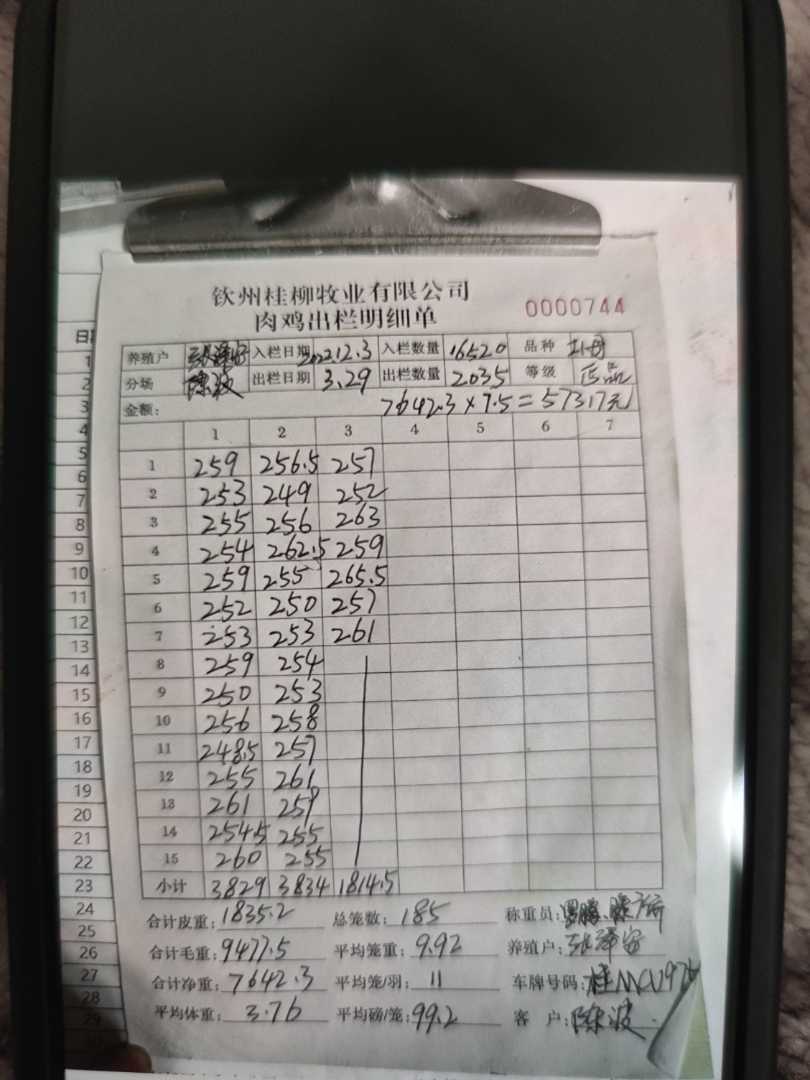 钦州桂柳牧业有限公司
肉鸡出栏明细单
0000744
养殖户 张泽安 入栏日期 2022.12.3 入栏数量 16520 品种
分场 陈波 出栏日期 3.29 出栏数量 2035 等级 正品
金额: 7642.3×7.5=57317元
1 2 3 4 5 6 7
1 259 256.5 257
2 253 249 252
3 255 256 263
4 254 262.5 259
5 259 255 265.5
6 252 250 257
7 253 253 261
8 259 254
9 250 253
10 256 258
11 248.5 257
12 255 261
13 261 259
14 254.5 255
15 260 255
小计 3829 3834 1814.5
合计皮重: 1835.2 总笼数: 185 称重员:
合计毛重: 9477.5 平均笼重: 9.92 养殖户: 张泽安
合计净重: 7642.3 平均笼/羽: 11 车牌号码: 桂MCU97
平均体重: 3.76 平均磅/笼: 99.2 客户: 陈波
日
1
2
3
4
5
6
7
8
9
10
11
12
13
14
15
16
17
18
19
20
21
22
23
24
25
26
27
28
29